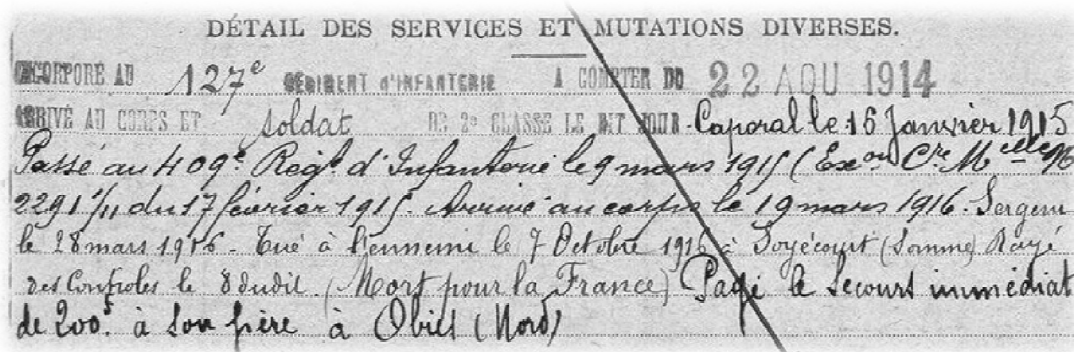 DÉTAIL DES SERVICES ET MUTATIONS DIVERSES.
INCORPORÉ AU 127e RÉGIMENT D'INFANTERIE A COMPTER DU 22 AOU 1914
ARRIVÉ AU CORPS ET soldat DE 2e CLASSE LE DIT JOUR. Caporal le 16 Janvier 1915
Passé au 409e Regt d'Infanterie le 9 mars 1915 (Exon Cre Mielle No
2291 1/11 du 17 février 1915. Arrivé au corps le 19 mars 1916. Sergent
le 28 mars 1916. Tué à l'ennemi le 7 Octobre 1916 à Soyécourt (Somme) Rayé
des Contrôles le 8 dudit. (Mort pour la France) Payé le secours immédiat
de 200f à son père à Obies (Nord)